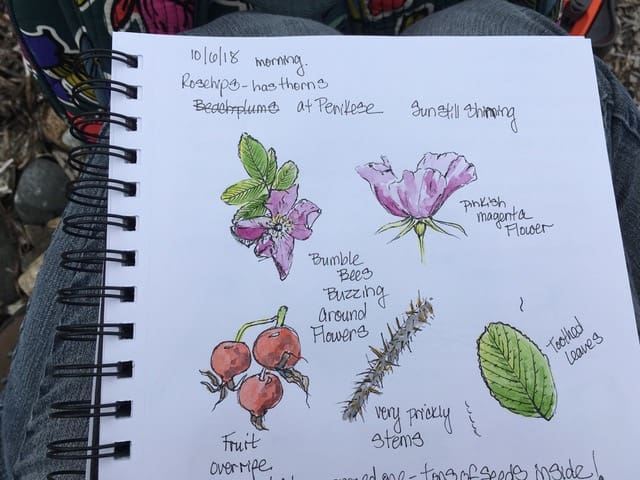 10/6/18 morning.
Rosehips - has thorns
Beachplums at Penikese Sun still shining
pinkish
magenta
Flower
Bumble
Bees
Buzzing
around
Flowers
Toothed
Leaves
very prickly
stems
Fruit
overripe
one - tons of seeds inside!